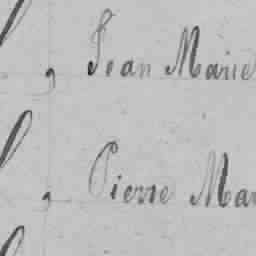 , Jean Marie
, Pierre Mar